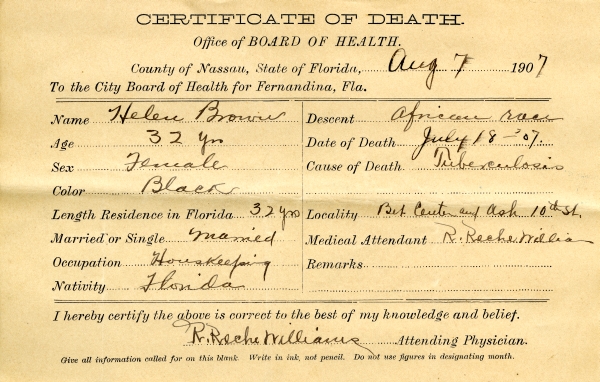 CERTIFICATE OF DEATH.
Office of BOARD OF HEALTH.
County of Nassau, State of Florida, Aug 7 1907
To the City Board of Health for Fernandina, Fla.
Name Helen Brown
Age 32 yrs
Sex Female
Color Black
Length Residence in Florida 32 yrs
Married or Single Married
Occupation Houskeeping
Nativity Florida
Descent African race
Date of Death July 18 - 07.
Cause of Death Tuberculosis
Locality Bet. Center and Ash 10th St.
Medical Attendant R. Roche William
Remarks
I hereby certify the above is correct to the best of my knowledge and belief.
R. Roche Williams Attending Physician.
Give all information called for on this blank. Write in ink, not pencil. Do not use figures in designating month.